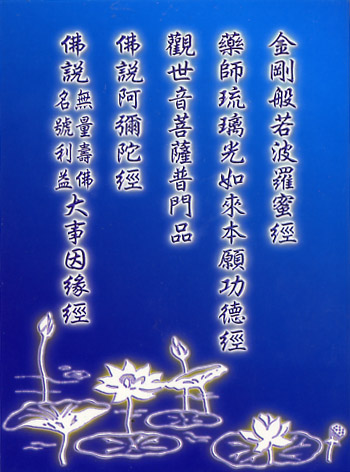 金剛般若波羅蜜經
藥師琉璃光如來本願功德經
觀世音菩薩普門品
佛說阿彌陀經
佛說無量壽佛名號利益大事因緣經